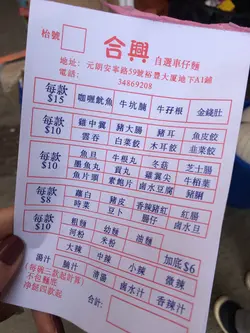 枱號
合興 自選車仔麵
地址：元朗安寧路59號裕豐大廈地下A1鋪
電話：34869208
每款 $15
咖喱魷魚 牛坑腩 牛孖根 金錢肚
每款 $10
雞中翼 豬大腸 豬耳 魚皮餃
雲吞 白菜餃 木耳餃 韭菜餃
每款 $10
魚旦 牛根丸 冬菇 芝士腸
墨魚丸 貢丸 雞翼尖 牛栢葉
魚片頭 素鮑片 鹵水豆腐 豬膶
每款 $8
蘿白 豬皮 香辣豬紅 紅腸
時菜 豆卜 腸仔 鹵水旦
每款 $10
粗麵 幼麵 油麵
河粉 米粉 加底$6
大辣 中辣 小辣 微辣
湯汁 腩汁 清湯 鹵水汁 香辣汁
（每碗三款起計算）
不包麵底
淨餸四款起
合計：